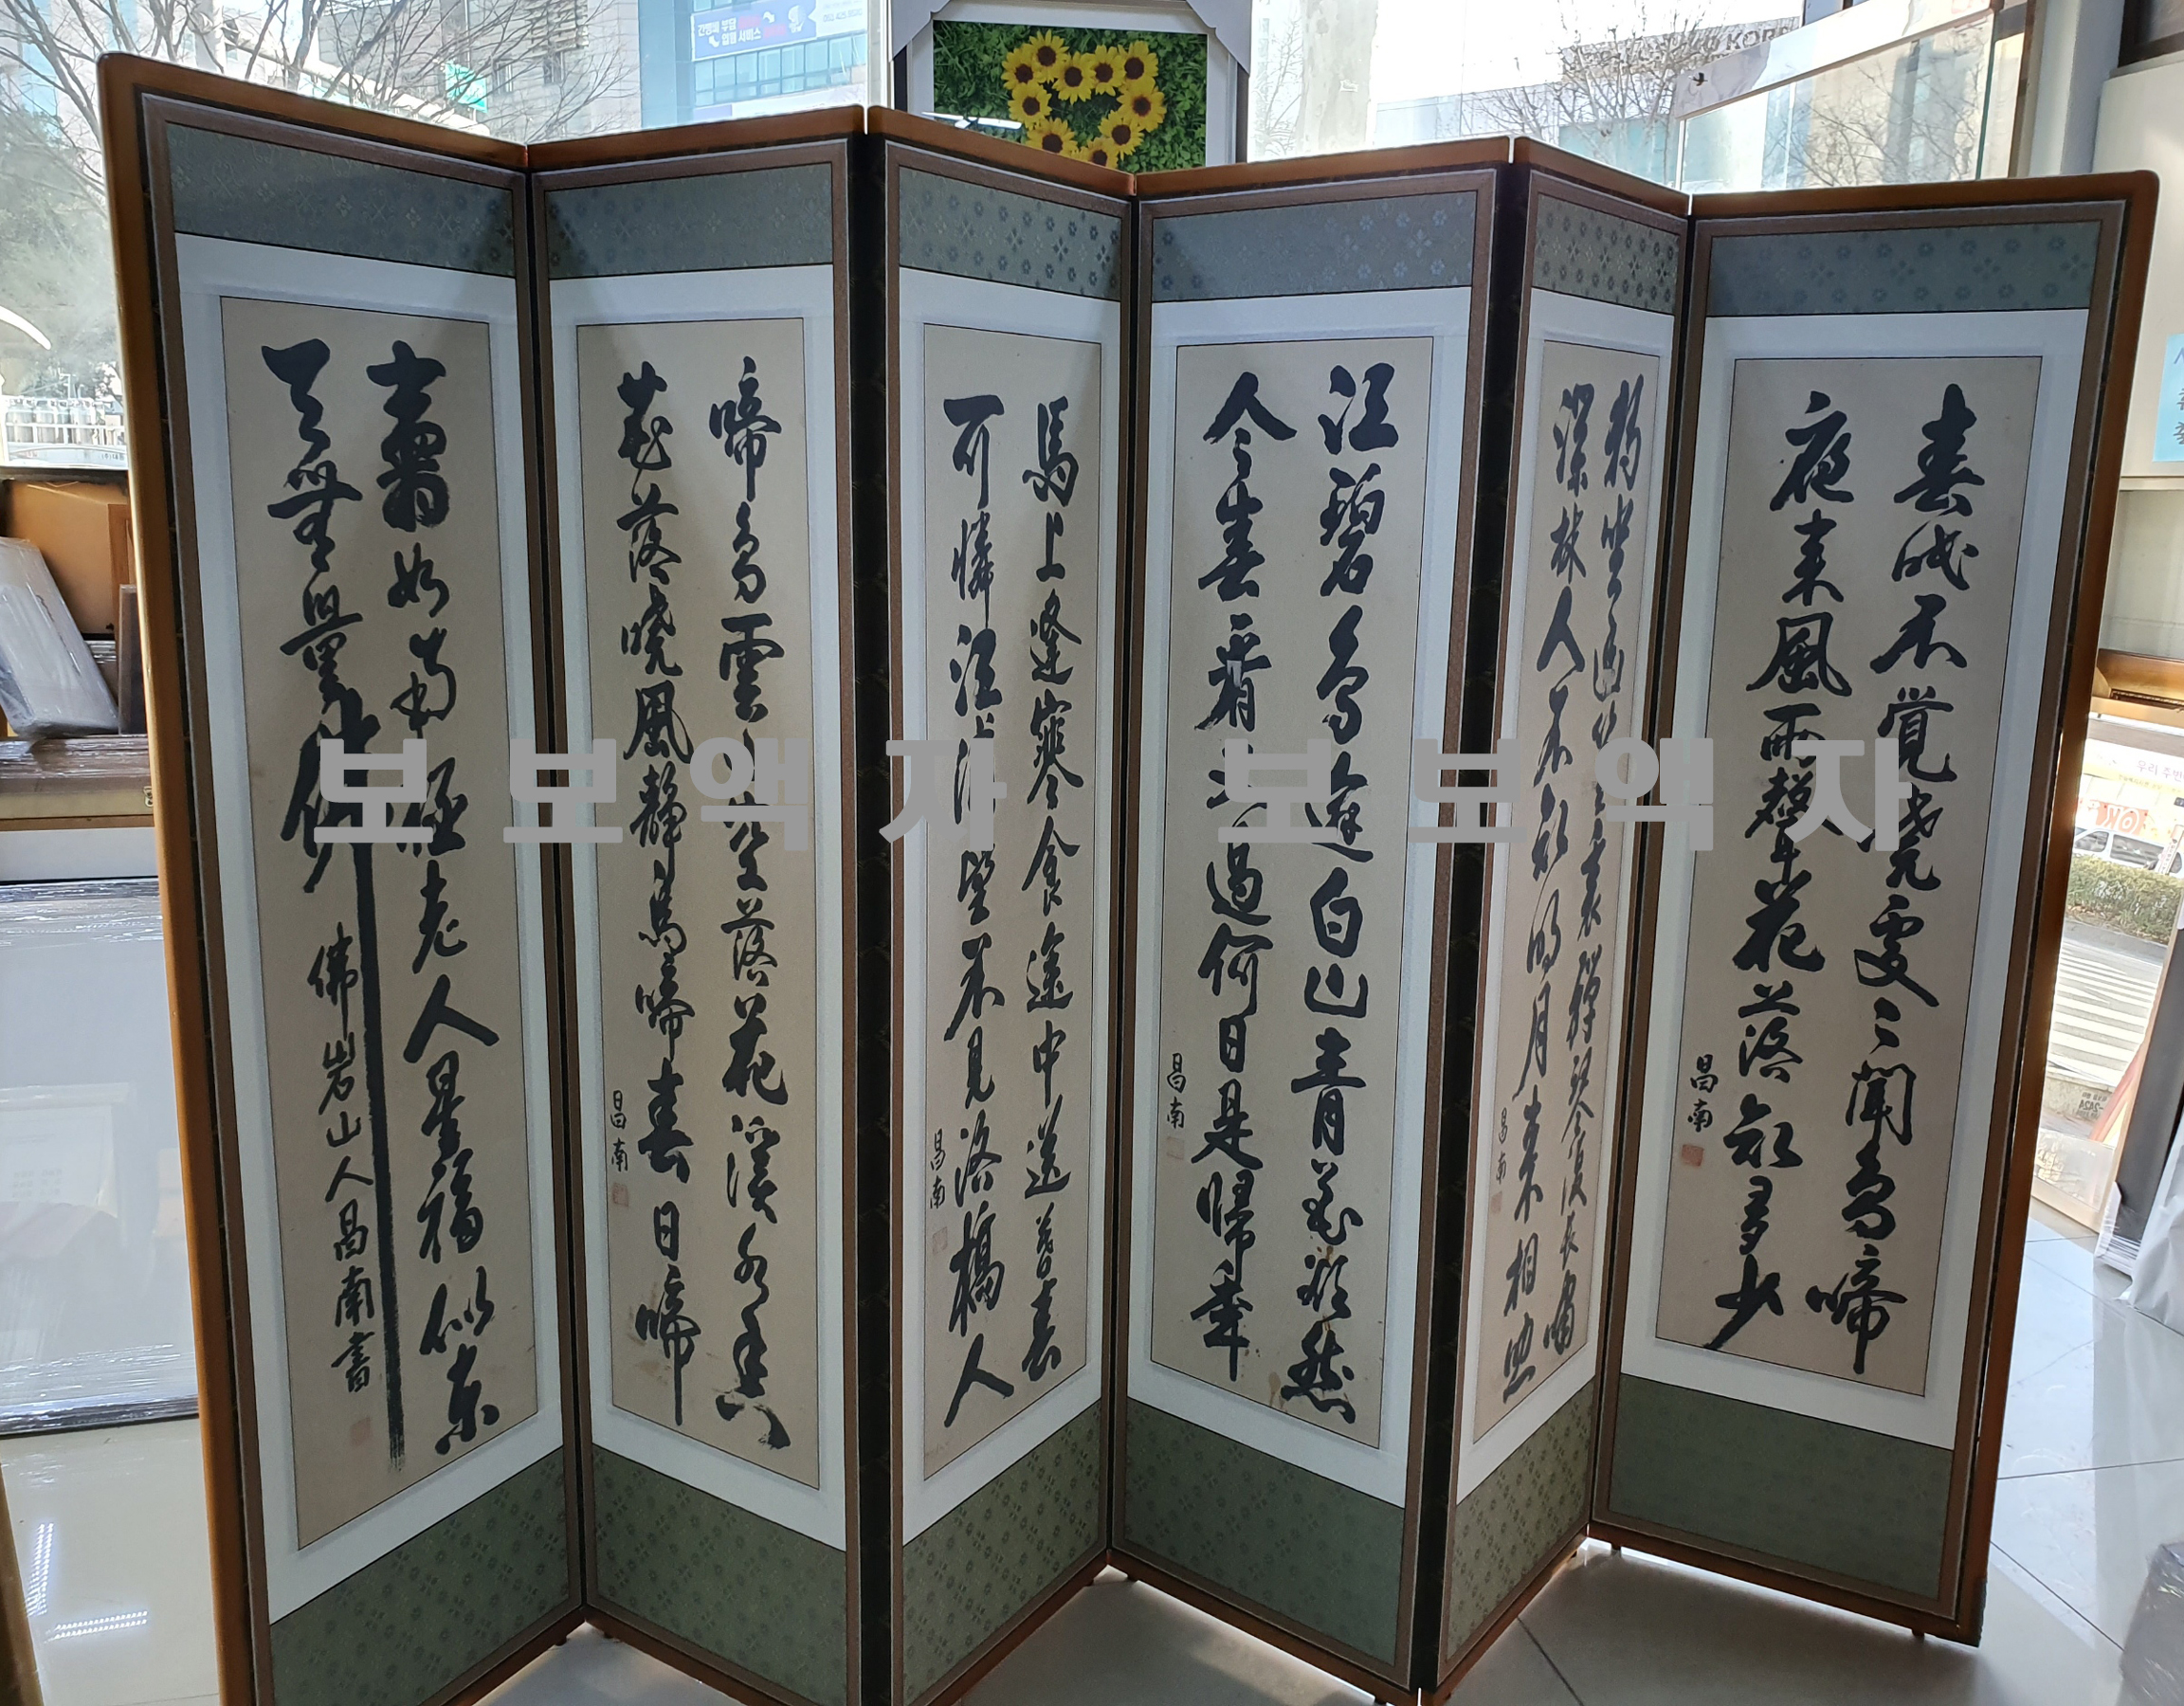 春眠不覺曉處〻聞鳥啼
夜來風雨聲花落知多少
昌南
獨坐幽篁裏彈琴復長嘯
深林人不知明月來相照
昌南
江碧鳥逾白山靑花欲然
今春看又過何日是歸年
昌南
馬上逢寒食途中送暮春
可憐江浦望不見洛橋人
昌南
啼鳥雲山空落花溪水香
花落曉風靜鳥啼春日啼
昌南
壽如南極老人星福似東
天無量佛
佛岩山人昌南書
보보액자 보보액자